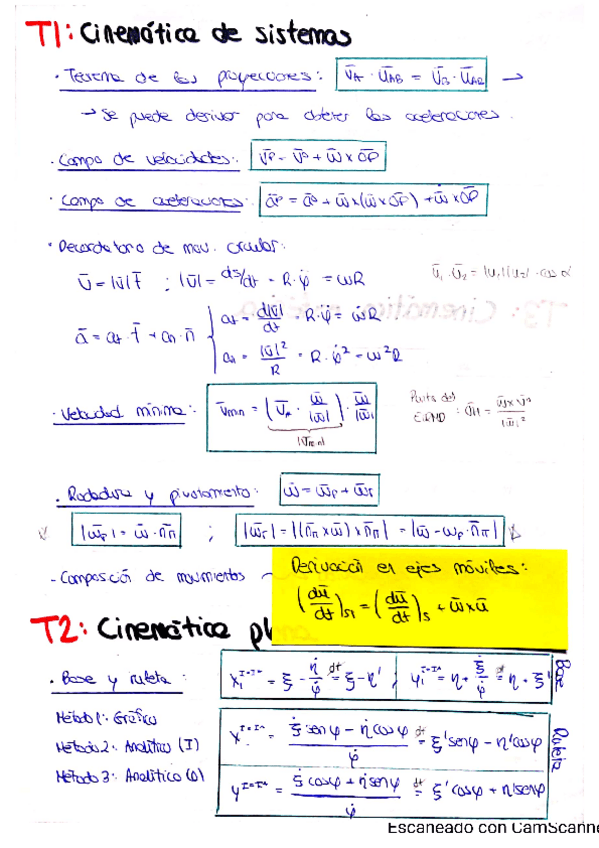 T1: Cinemática de sistemas
· Teorema de las proyecciones: v̄A · ūAB = v̄B · ūAB →
→ Se puede derivar para obtener las aceleraciones.
· Campo de velocidades: v̄P = v̄O + ω̄ x OP
· Campo de aceleraciones: āP = āO + ω̄ x (ω̄ x OP) + ω̄̇ x OP
· Recordatorio de mov. circular:
v̄ = |v̄| t̄ ; |v̄| = ds/dt = R·φ̇ = ωR
v̄1 · v̄2 = |v1| |v2| · cos α
ā = at · t̄ + an · n̄
at = d|v̄|/dt = R·φ̈ = ω̇R
an = |v̄|²/R = R·φ̇² = ω²R
· Velocidad mínima: v̄min = (v̄A · ω̄/|ω̄|) · ω̄/|ω̄|
|v̄min|
Punto del EIRMD:
· Rodadura y pivotamiento: ω̄ = ω̄p + ω̄r
|ω̄p| = ω̄ · n̄π ; |ω̄r| = |(n̄π x ω̄) x n̄π| = |ω̄ - ωp · n̄π|
- Composición de movimientos
Derivación en ejes móviles:
(dū/dt)S1 = (dū/dt)S + ω̄ x ū
T2: Cinemática pl
· Base y ruleta:
x1 = ξ - η̇/φ̇ = ξ - η' ; y1 = η + ξ̇/φ̇ = η + ξ'
Base
Método 1: Gráfico
Método 2: Analítico (I)
Método 3: Analítico (φ)
x = (ξ̇ senφ - η̇ cosφ)/φ̇ = ξ' senφ - η' cosφ
y = (ξ̇ cosφ + η̇ senφ)/φ̇ = ξ' cosφ + η' senφ
Ruleta
Escaneado con CamScanne